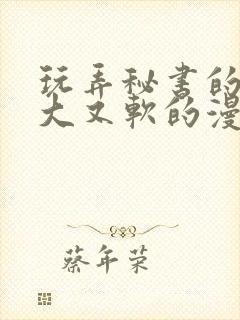 玩弄秘书的
大又软的漫
蔡年荣